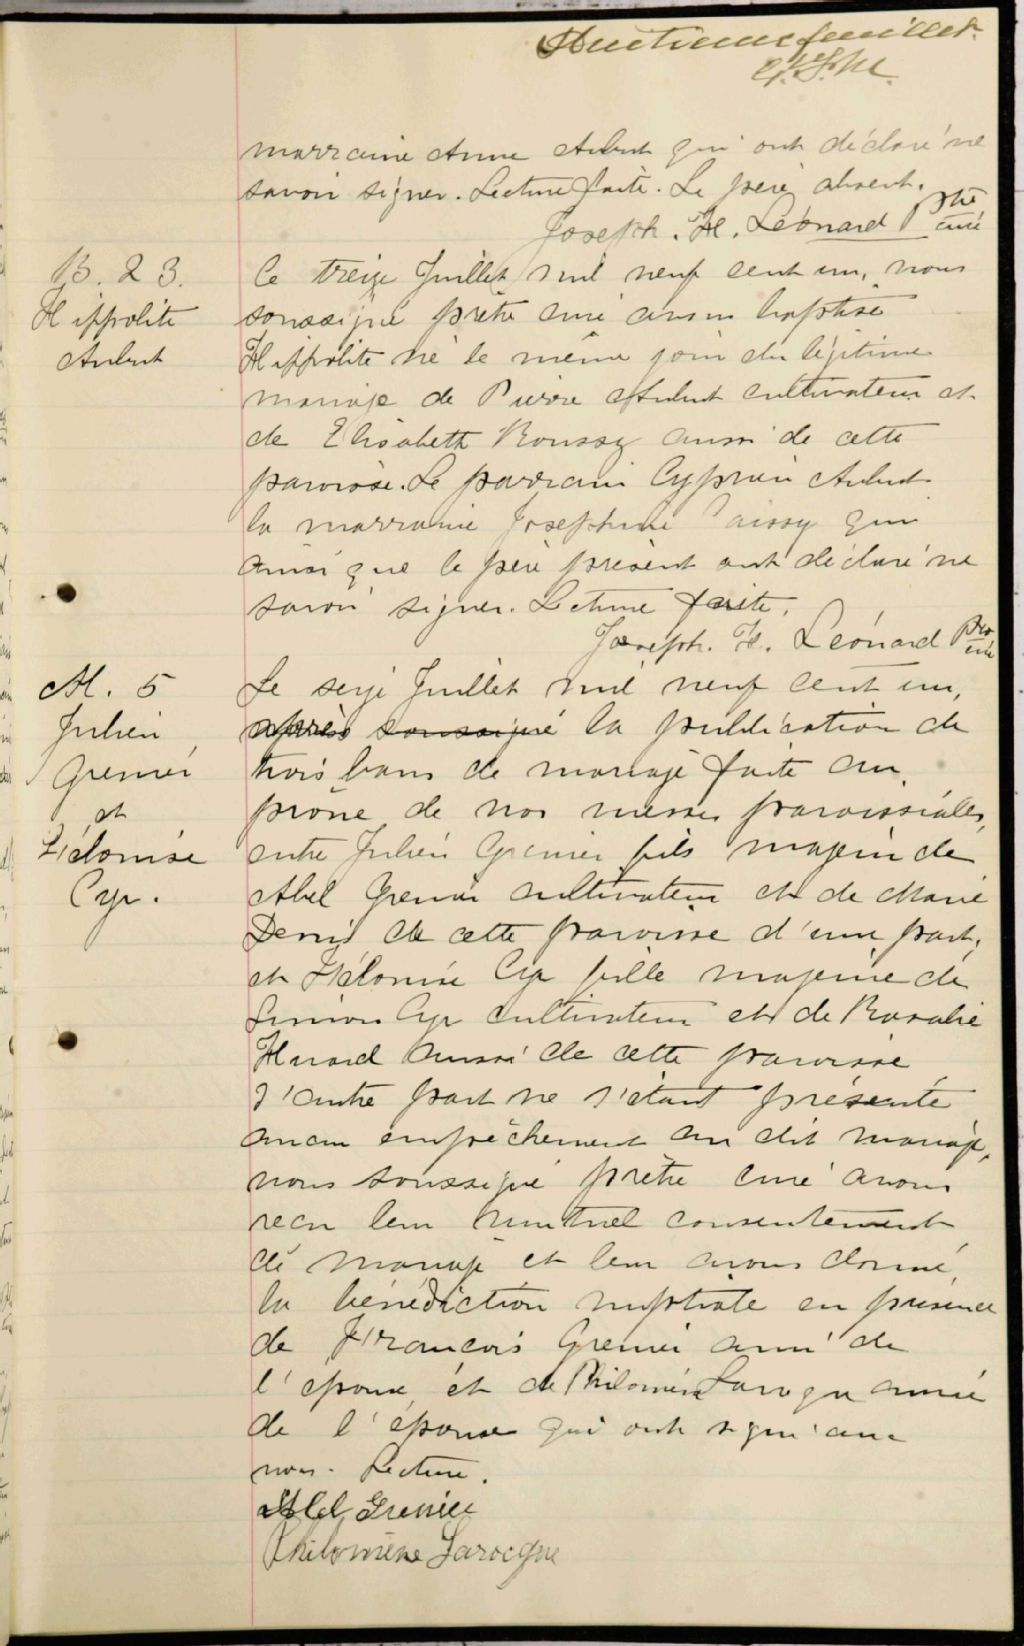 Huitième feuillet.
marraine Anne Aubut qui ont déclaré ne
savoir signer. Lecture faite. Le père absent.
Joseph. H. Léonard Ptre
curé
B. 23.
Hippolite
Aubut
Ce treize Juillet mil neuf cent un, nous
soussigné prêtre curé avons baptisé
Hippolite né le même jour du légitime
mariage de Pierre Aubut cultivateur et
de Elisabeth Roussy aussi de cette
paroisse. Le parrain Cyprien Aubut
la marraine Josephine Caissy qui
ainsi que le père présent ont déclaré ne
savoir signer. Lecture faite.
Joseph. H. Léonard Ptre
curé
M. 5
Julien
Grenier
et
Hélouise
Cyr.
Le seize Juillet mil neuf cent un,
après soussigné la publication de
trois bans de mariage faite au
prône de nos messes paroissiales,
entre Julien Grenier fils majeur de
Abel Grenier cultivateur et de Marie
Denis de cette paroisse d'une part,
et Hélouise Cyr fille majeure de
Simon Cyr cultivateur et de Rosalie
Huard aussi de cette paroisse
d'autre part ne s'étant présenté
aucun empêchement au dit mariage,
nous soussigné prêtre curé avons
reçu leur mutuel consentement
de mariage et leur avons donné
la bénédiction nuptiale en présence
de François Grenier ami de
l'époux et de Philomène Larocque amie
de l'épouse qui ont signé avec
nous. Lecture.
Abel Grenier
Philomène Larocque